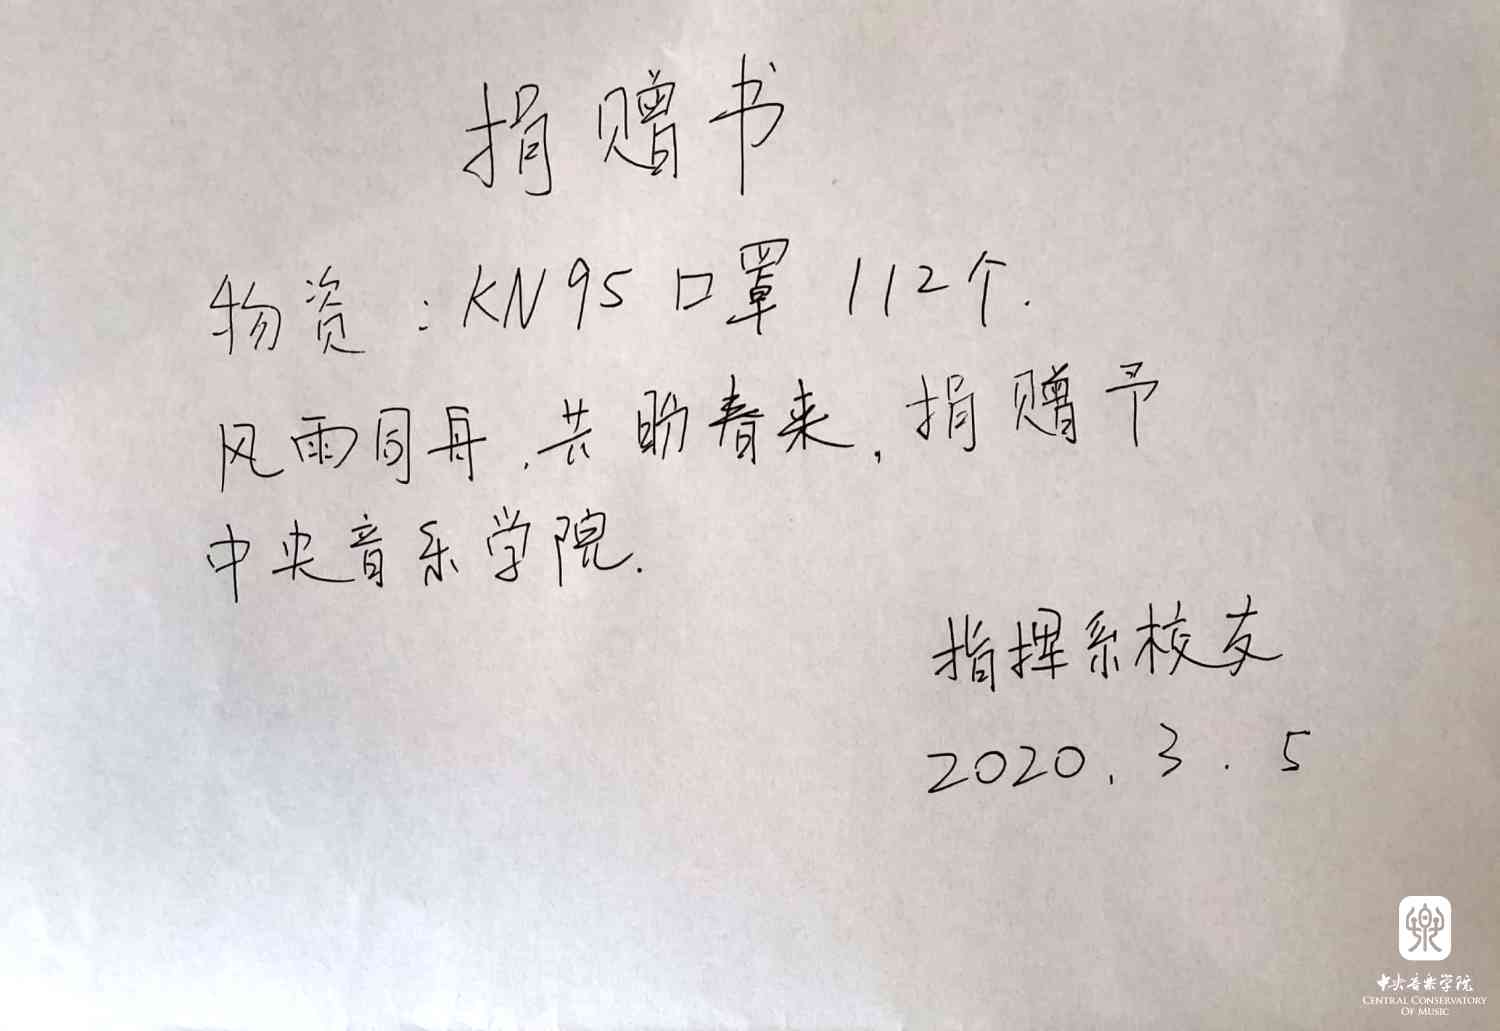 捐赠书
物资：KN95口罩 112个.
风雨同舟，共盼春来，捐赠予
中央音乐学院.
指挥系校友
2020.3.5
中央音乐学院
CENTRAL CONSERVATORY
OF MUSIC